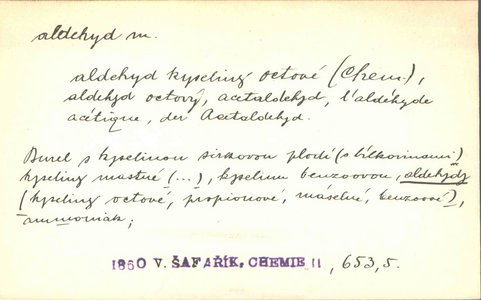 aldehyd m.
aldehyd kyseliny octové (Chem.),
aldehyd octový, acetaldehyd, l'aldéhyde
acétique, der Acetaldehyd.
Burel s kyselinou sírkovou plodí (s bílkovinami)
kyseliny mastné (...), kyselinu benzoovou, aldehydy
(kyseliny octové, propionové, máselné, benzoové),
ammoniak;
1860 V. ŠAFAŘÍK, CHEMIE II, 653,5.